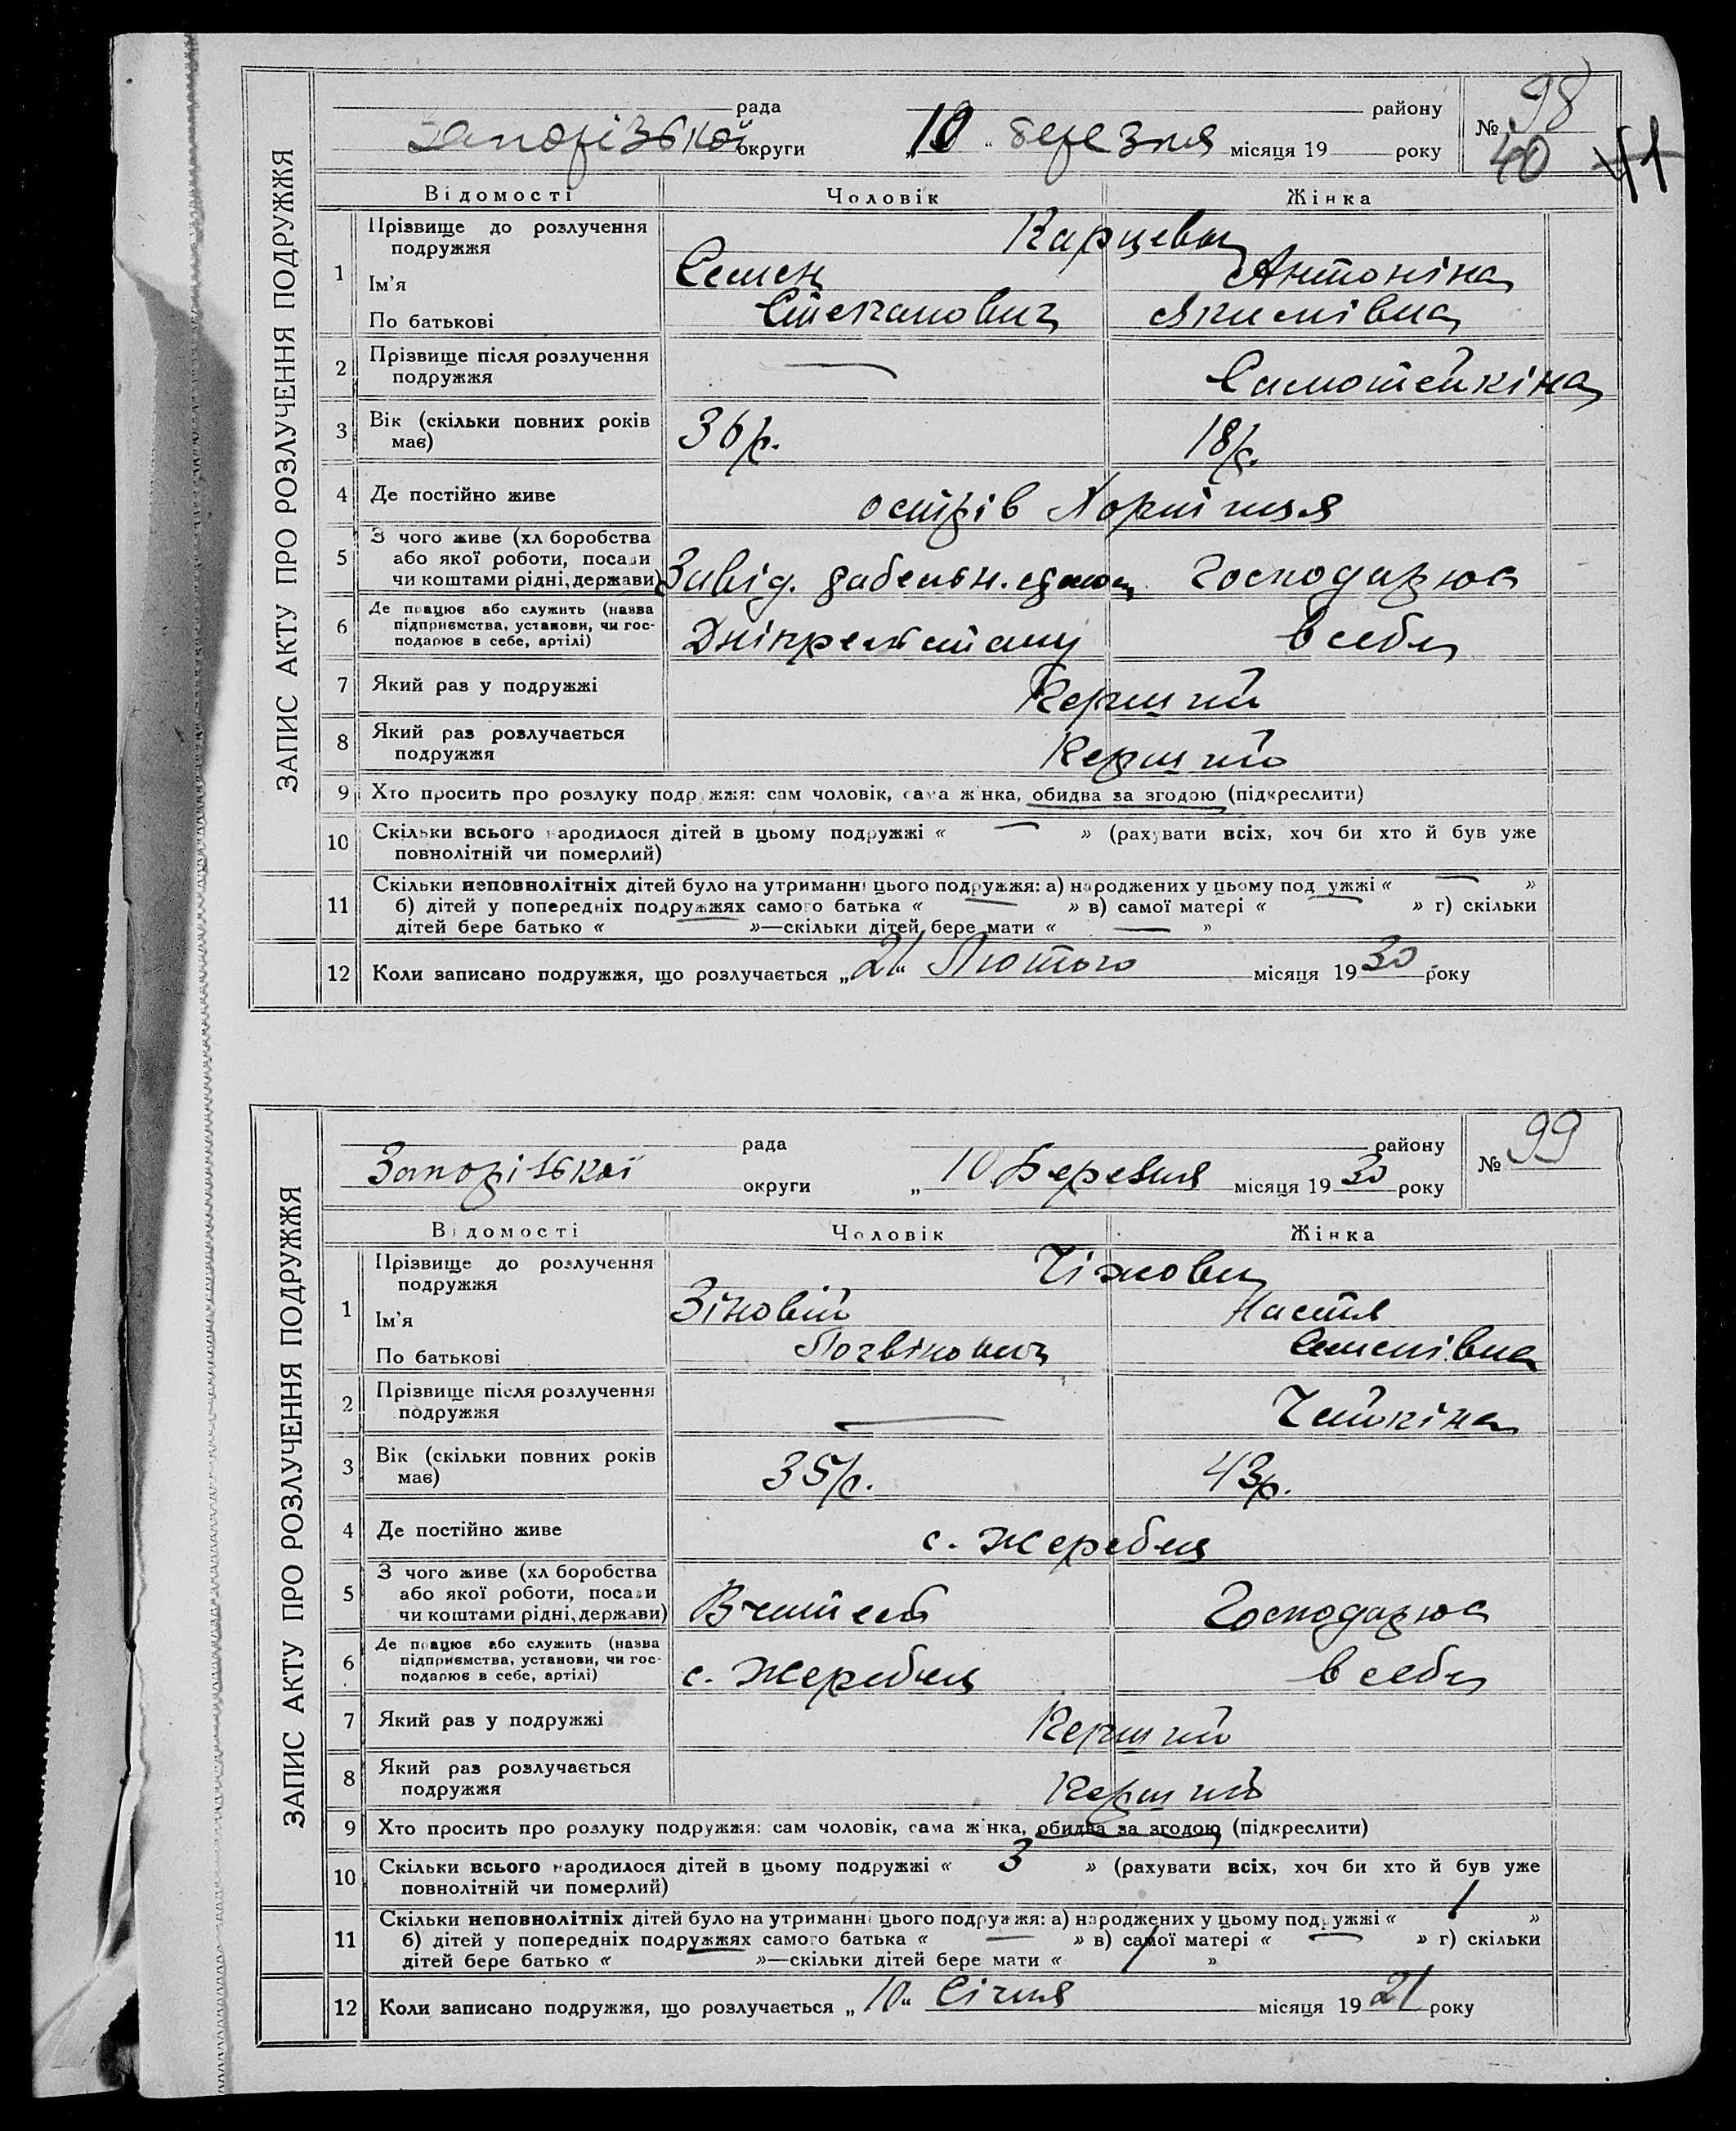 ЗАПИС АКТУ ПРО РОЗЛУЧЕННЯ ПОДРУЖЖЯ
рада района № 98
Запорізької округи „10“ березня місяця 19 року 40 41
Відомості Чоловік Жінка
1 Прізвище до розлучення подружжя Карцевы
Ім'я Семен Антоніна
По батькові Степанович Якимівна
2 Прізвище після розлучення подружжя — Самотейкіна
3 Вік (скільки повних років має) 36 р. 18 р.
4 Де постійно живе острів Хортиця
5 З чого живе (хліборобства або якої роботи, посади чи коштами рідні, держави) Завід. Господарює
6 Де працює або служить (назва підприємства, установи, чи господарює в себе, артілі) в себе
7 Який раз у подружжі Перший
8 Який раз розлучається подружжя Перший
9 Хто просить про розлуку подружжя: сам чоловік, сама жінка, обидва за згодою (підкреслити)
10 Скільки всього народилося дітей в цьому подружжі « — » (рахувати всіх, хоч би хто й був уже
повнолітній чи померлий)
11 Скільки неповнолітніх дітей було на утриманні цього подружжя: а) народжених у цьому подружжі « — »
б) дітей у попередніх подружжях самого батька « — » в) самої матері « — » г) скільки
дітей бере батько « — »—скільки дітей бере мати « — »
12 Коли записано подружжя, що розлучається „21“ Лютого місяця 1930 року
ЗАПИС АКТУ ПРО РОЗЛУЧЕННЯ ПОДРУЖЖЯ
рада району № 99
Запорізької округи „10 Березня місяця 1930 року
Відомості Чоловік Жінка
1 Прізвище до розлучення подружжя Чіжовы
Ім'я Зіновій Настя
По батькові Логвінович Семенівна
2 Прізвище після розлучення подружжя — Чайкіна
3 Вік (скільки повних років має) 35 р. 43 р.
4 Де постійно живе с. Жеребця
5 З чого живе (хліборобства або якої роботи, посади чи коштами рідні, держави) Вчитель Господарює
6 Де працює або служить (назва підприємства, установи, чи господарює в себе, артілі) с. Жеребця в себе
7 Який раз у подружжі Перший
8 Який раз розлучається подружжя Перший
9 Хто просить про розлуку подружжя: сам чоловік, сама жінка, обидва за згодою (підкреслити)
10 Скільки всього народилося дітей в цьому подружжі « 3 » (рахувати всіх, хоч би хто й був уже
повнолітній чи померлий)
11 Скільки неповнолітніх дітей було на утриманні цього подружжя: а) народжених у цьому подружжі « 1 »
б) дітей у попередніх подружжях самого батька « — » в) самої матері « — » г) скільки
дітей бере батько « »—скільки дітей бере мати « 1 »
12 Коли записано подружжя, що розлучається „10“ Січня місяця 1921 року